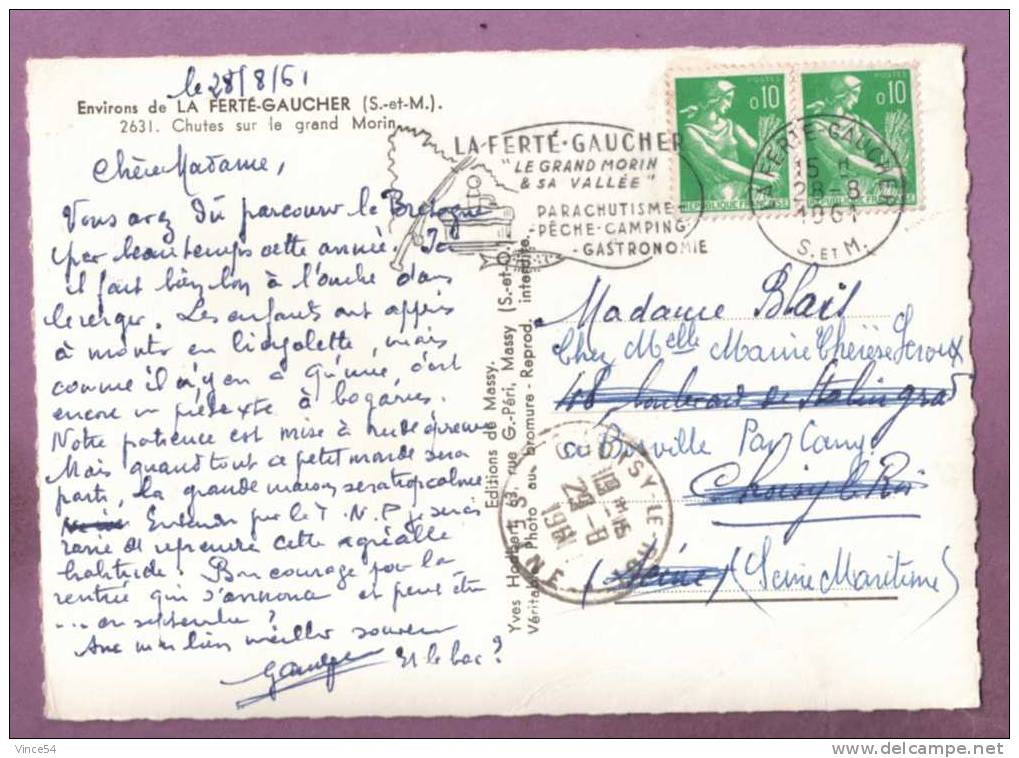 le 28/8/61
Environs de LA FERTÉ-GAUCHER (S.-et-M.).
2631. Chutes sur le grand Morin
Chère Madame,
Vous avez dû parcourir la Bretagne
par beau temps cette année. Ici
il fait bien bon à l'ombre dans
le verger. Les enfants ont appris
à monter en bicyclette, mais
comme il n'y en a qu'une, c'est
encore un prétexte à bagarres.
Notre patience est mise à rude épreuve
Mais quand tout ce petit monde sera
parti, la grande maison sera trop calme
Entendu pour le T.N.P. je serai
ravie de reprendre cette agréable
habitude. Bon courage pour la
rentrée qui s'annonce et peut être
... en septembre ?
Avec mon bien meilleur souvenir
Et le bac ?
Editions de Massy.
Yves 63, rue G.-Péri, Massy (S.-et-O.)
Véritable Photo au bromure - Reprod. interdite.
LA FERTÉ-GAUCHER
"LE GRAND MORIN
& SA VALLÉE"
PARACHUTISME-
PÊCHE-CAMPING-
-GASTRONOMIE
POSTES
0,10
REPUBLIQUE FRANÇAISE
POSTES
0,10
REPUBLIQUE FRANÇAISE
LA FERTÉ-GAUCHER
15 H
28-8
1961
S. ET M.
Madame Blais
Chez Melle Marie Thérèse Leroux
48, boulevard de Stalingrad
à Bosville Par Cany
Choisy le Roi
(Seine) (Seine Maritime)
CHOISY-LE-ROI
1961
SEINE
Vince54
http://www.delcampe.net